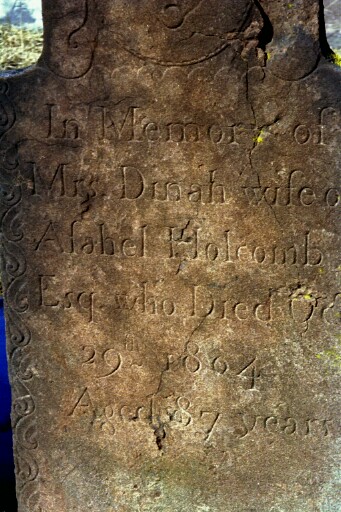 In Memory of
Mrs. Dinah wife o
Aſahel Holcomb
Esq. who Died Oc
29th 1804
Aged 87 years